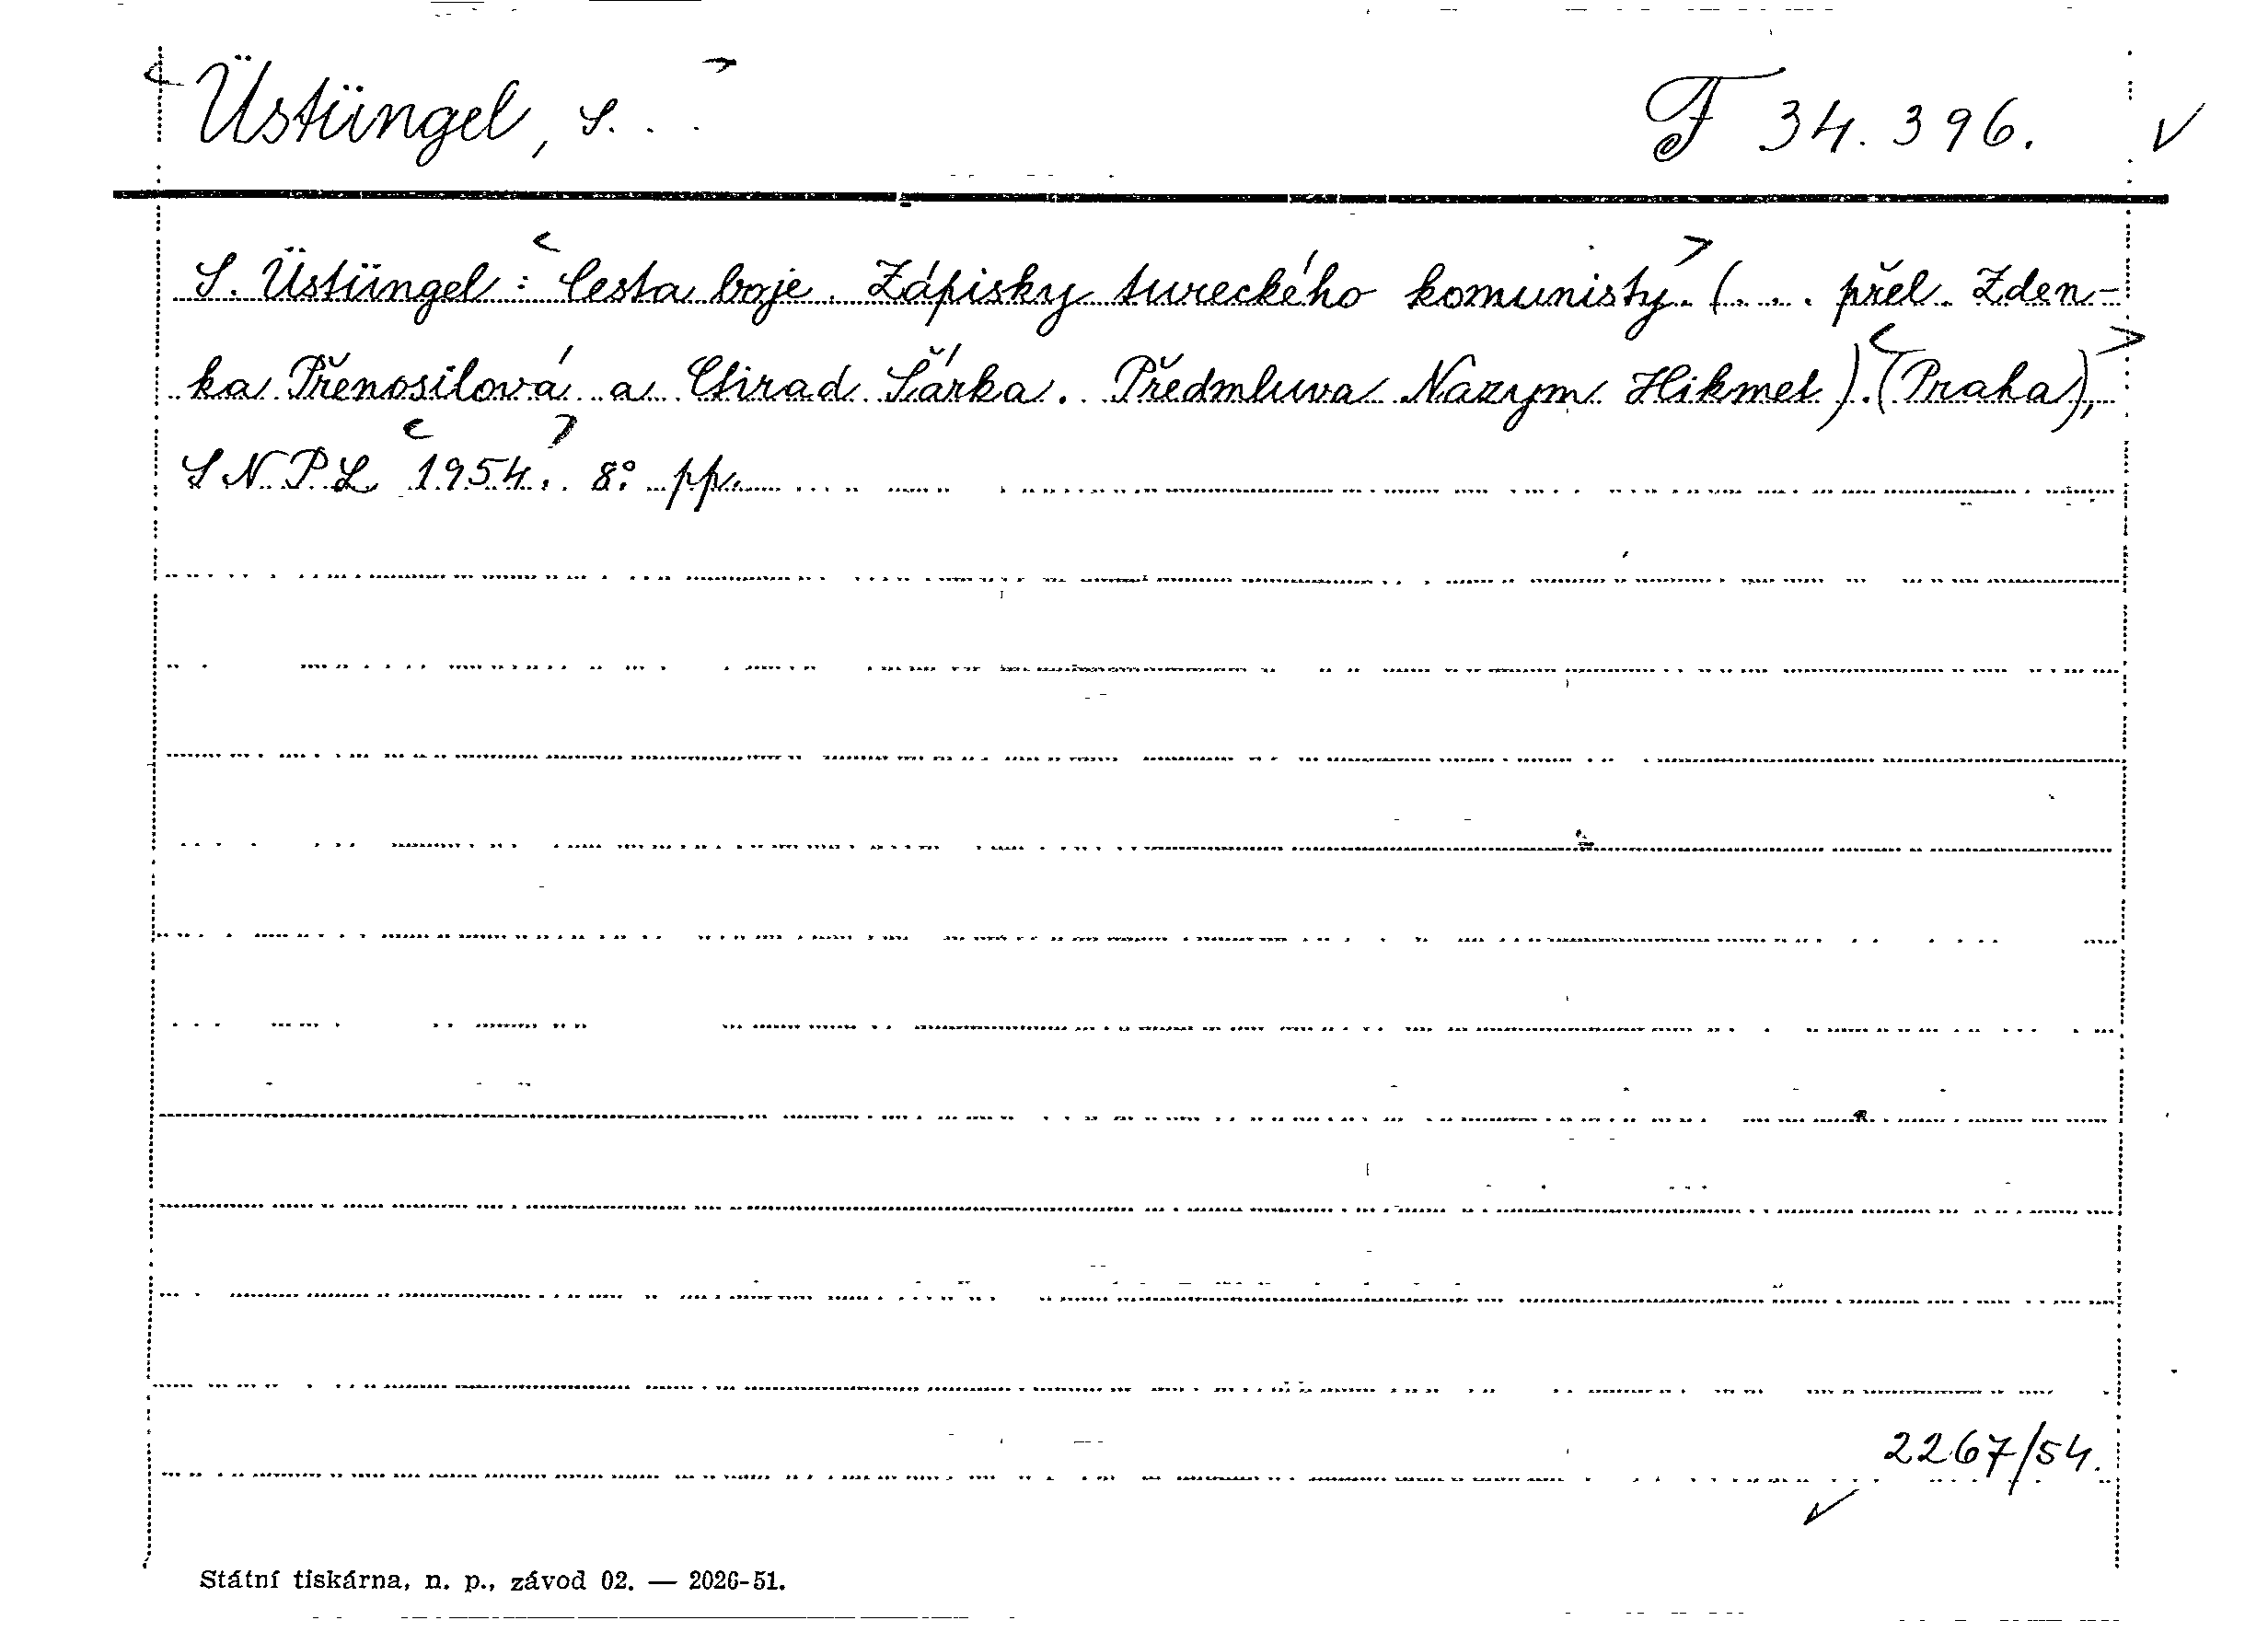 <Üstüngel, S. . .>
F 34.396. ✓
S. Üstüngel: <Cesta boje. Zápisky tureckého komunisty.> (. . . přel. Zden-
ka Přenosilová a Ctirad Šárka. Předmluva Nazym Hikmet). <(Praha),>
SNPL <1954.> 8° pp.
2267/54.
✓
Státní tiskárna, n. p., závod 02. — 2026-51.